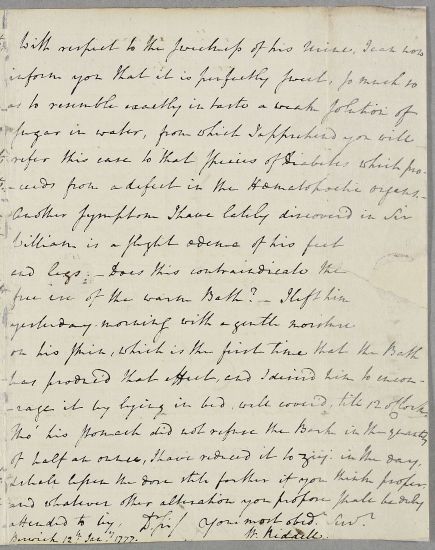 With respect to the sweetness of his Urine, I can now
inform you that it is perfectly sweet, so much so
as to resemble exactly in taste a weak Solution of
Sugar in water, from which I apprehend you will
refer this case to that Species of Diabetes which pro-
-ceeds from a defect in the Hæmatopoetic organs.-
Another Symptom I have lately discoverd in Sir
William is a slight œdema of his feet
and legs. - Does this contraindicate the
free use of the warm Bath? - I left him
yesterday morning with a gentle moisture
on his Skin, which is the first time that the Bath
has produced that effect, and I desired him to encou-
-rage it by lying in bed, well coverd, till 12 o'Clock.
Tho' his Stomach did not refuse the Bark in the quantity
of half an ounce, I have reduced it to ʒiij. in the day,
shall lessen the dose still further if you think proper,
and whatever other alteration you propose shall be duly
attended to by, Dr Sir your most obedt. Servt.
Berwick 12th. Jany. 1777. W. Riddell.